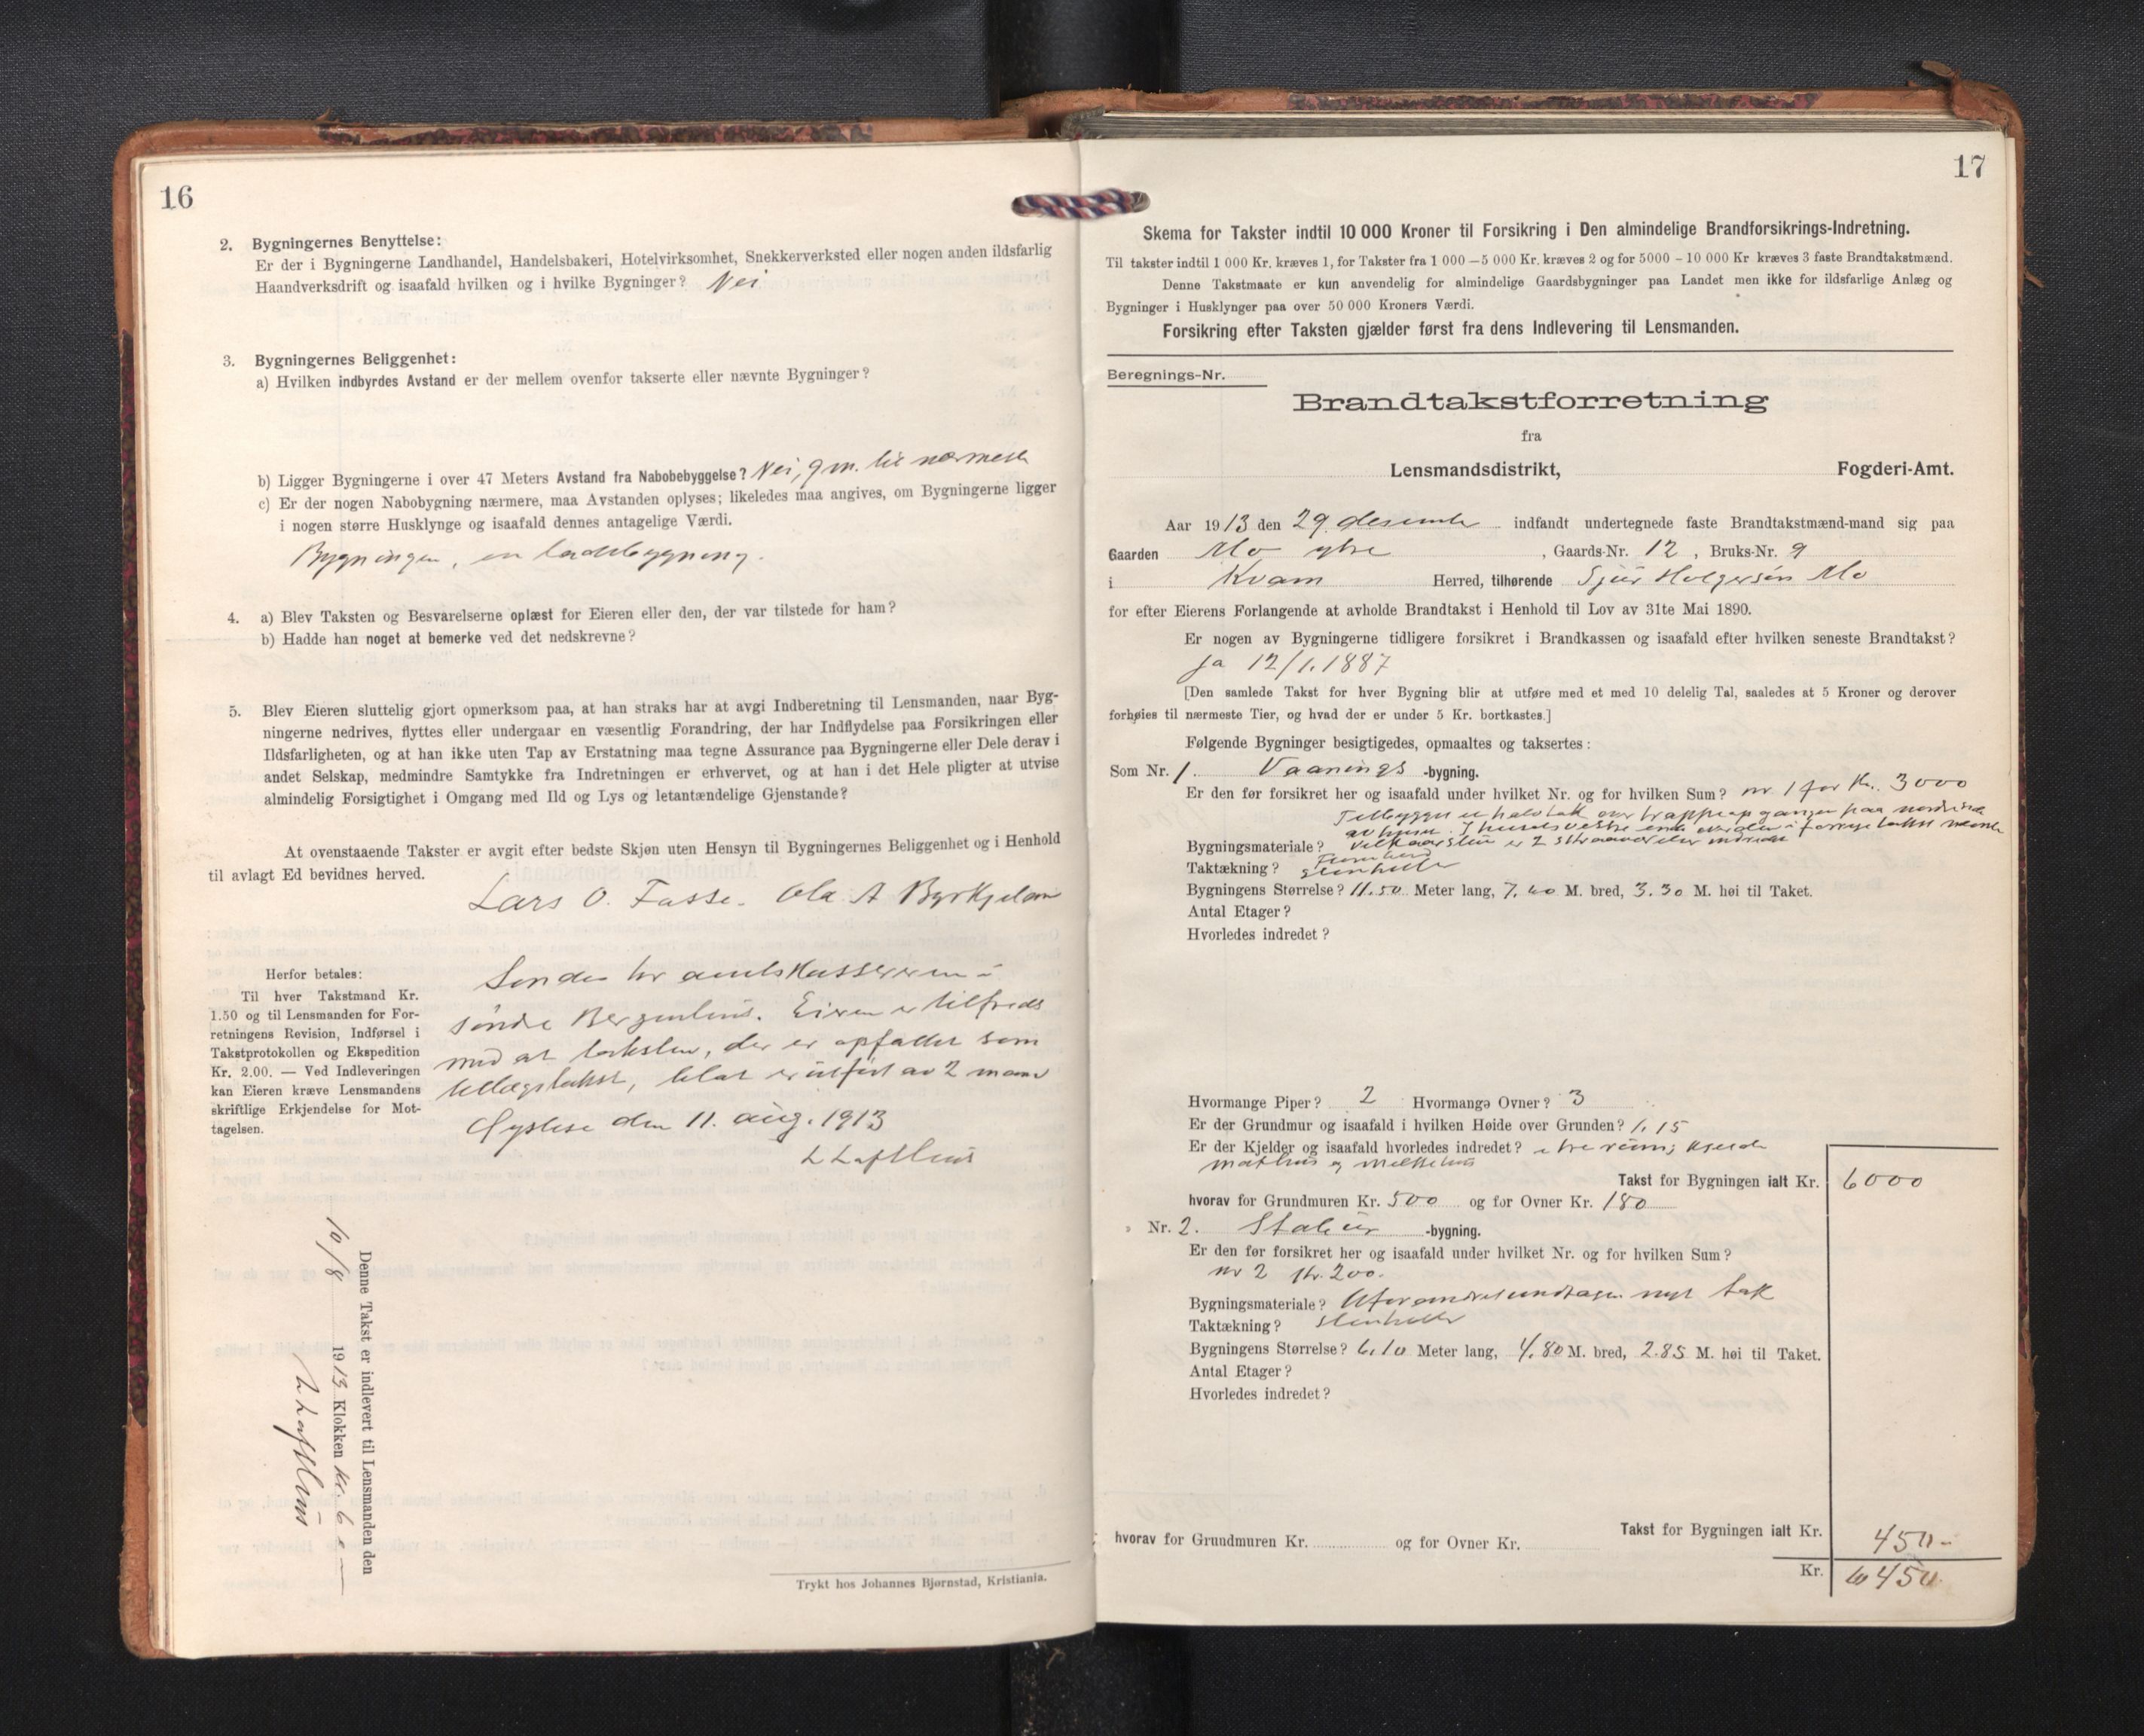 16
2. Bygningernes Benyttelse:
Er der i Bygningerne Landhandel, Handelsbakeri, Hotelvirksomhet, Snekkerverksted eller nogen anden ildsfarlig
Haandverksdrift og isaafald hvilken og i hvilke Bygninger? Nei
3. Bygningernes Beliggenhet:
a) Hvilken indbyrdes Avstand er der mellem ovenfor takserte eller nævnte Bygninger?
b) Ligger Bygningerne i over 47 Meters Avstand fra Nabobebyggelse? Nei, 9 m. til nærmeste
c) Er der nogen Nabobygning nærmere, maa Avstanden oplyses; likeledes maa angives, om Bygningerne ligger
i nogen større Husklynge og isaafald dennes antagelige Værdi.
Bygningen, en ladebygning.
4. a) Blev Taksten og Besvarelserne oplæst for Eieren eller den, der var tilstede for ham?
b) Hadde han noget at bemerke ved det nedskrevne?
5. Blev Eieren sluttelig gjort opmerksom paa, at han straks har at avgi Indberetning til Lensmanden, naar Byg-
ningerne nedrives, flyttes eller undergaar en væsentlig Forandring, der har Indflydelse paa Forsikringen eller
Ildsfarligheten, og at han ikke uten Tap av Erstatning maa tegne Assurance paa Bygningerne eller Dele derav i
andet Selskap, medmindre Samtykke fra Indretningen er erhvervet, og at han i det Hele pligter at utvise
almindelig Forsigtighet i Omgang med Ild og Lys og letantændelige Gjenstande?
At ovenstaaende Takster er avgit efter bedste Skjøn uten Hensyn til Bygningernes Beliggenhet og i Henhold
til avlagt Ed bevidnes herved.
Lars O. Fosse. Ola A Byrkjeland
Herfor betales:
Til hver Takstmand Kr.
1.50 og til Lensmanden for For-
retningens Revision, Indførsel i
Takstprotokollen og Ekspedition
Kr. 2.00. — Ved Indleveringen
kan Eieren kræve Lensmandens
skriftlige Erkjendelse for Mot-
tagelsen.
Sendes hr amtskassereren i
søndre Bergenhus. Eieren er tilfreds
med at taksten, der er opfattet som
tillægstakst, blot er utført av 2 mænd
Øystese den 11. aug. 1913
L Lofthus
Denne Takst er indlevert til Lensmanden den
10/8 1913 Klokken kl. 6 e
L Lofthus
Trykt hos Johannes Bjørnstad, Kristiania.
17
Skema for Takster indtil 10 000 Kroner til Forsikring i Den almindelige Brandforsikrings-Indretning.
Til takster indtil 1 000 Kr. kræves 1, for Takster fra 1 000 — 5 000 Kr. kræves 2 og for 5000 - 10 000 Kr kræves 3 faste Brandtakstmænd.
Denne Takstmaate er kun anvendelig for almindelige Gaardsbygninger paa Landet men ikke for ildsfarlige Anlæg og
Bygninger i Husklynger paa over 50 000 Kroners Værdi.
Forsikring efter Taksten gjælder først fra dens Indlevering til Lensmanden.
Beregnings-Nr.
Brandtakstforretning
fra
Lensmandsdistrikt, Fogderi-Amt.
Aar 1913 den 29. desember indfandt undertegnede faste Brandtakstmænd-mand sig paa
Gaarden Mo ytre, Gaards-Nr. 12, Bruks-Nr. 9
i Kvam Herred, tilhørende Sjur Holgersøn Mo
for efter Eierens Forlangende at avholde Brandtakst i Henhold til Lov av 31te Mai 1890.
Er nogen av Bygningerne tidligere forsikret i Brandkassen og isaafald efter hvilken seneste Brandtakst?
Ja 12/1. 1887
[Den samlede Takst for hver Bygning blir at utføre med et med 10 delelig Tal, saaledes at 5 Kroner og derover
forhøies til nærmeste Tier, og hvad der er under 5 Kr. bortkastes.]
Følgende Bygninger besigtigedes, opmaaltes og taksertes:
Som Nr. 1. Vaanings -bygning.
Er den før forsikret her og isaafald under hvilket Nr. og for hvilken Sum? nr 1 for Kr. 3000
Tilbygget et halvtak over trappeopgangen paa nordside
av huset. I husets vestre ende
Bygningsmateriale? er 2 indredet
Taktækning? stenheller
Bygningens Størrelse? 11.50 Meter lang, 7.40 M. bred, 3.30 M. høi til Taket.
Antal Etager?
Hvorledes indredet?
Hvormange Piper? 2 Hvormange Ovner? 3
Er der Grundmur og isaafald i hvilken Høide over Grunden? 1.15
Er der Kjelder og isaafald hvorledes indredet? i tre rum; kjelder
mathus og melkehus
Takst for Bygningen ialt Kr. 6000
hvorav for Grundmuren Kr. 500 og for Ovner Kr. 180
» Nr. 2. Stabur -bygning.
Er den før forsikret her og isaafald under hvilket Nr. og for hvilken Sum?
nr 2 Kr. 200.
Bygningsmateriale? Uforandret undtagen nyt tak
Taktækning? stenheller
Bygningens Størrelse? 6.10 Meter lang, 4.80 M. bred, 2.85 M. høi til Taket.
Antal Etager?
Hvorledes indredet?
Takst for Bygningen ialt Kr. 450-
hvorav for Grundmuren Kr. og for Ovner Kr.
Kr. 6450.